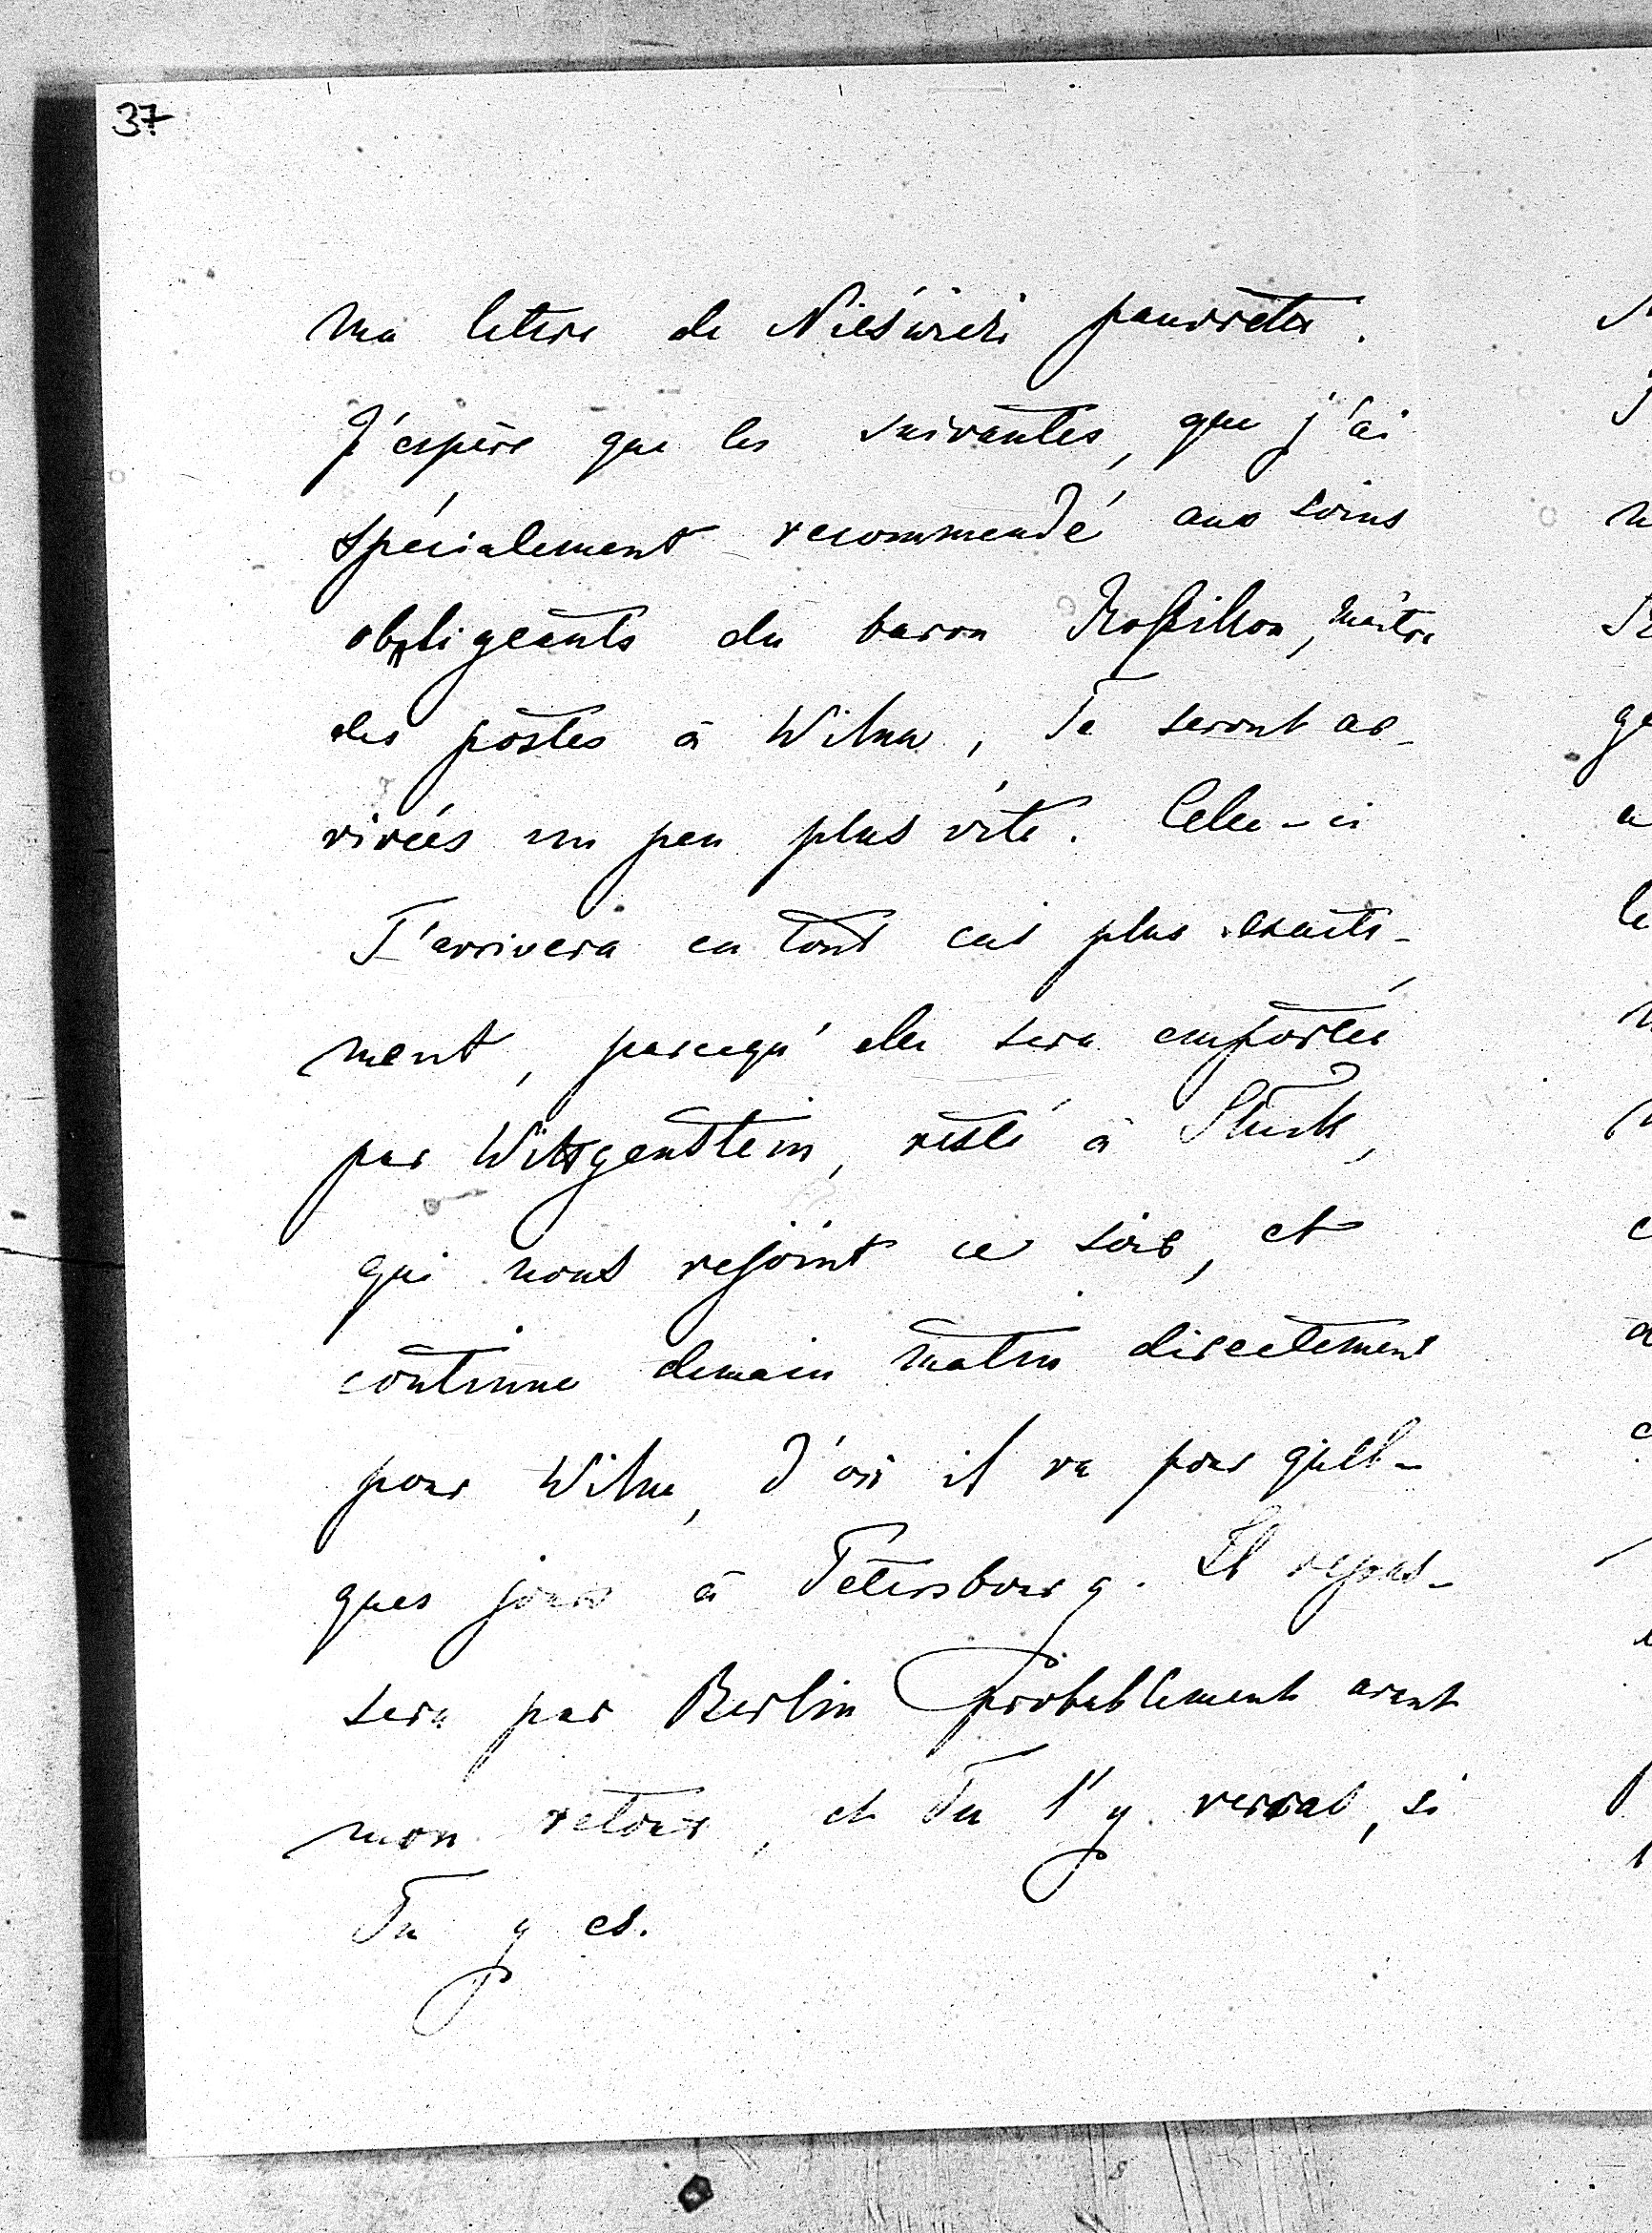 37
ma lettre de Nieświeź pauvrette.
J'espère que les suivantes, que j'ai
spécialement recommendé aux soins
obligeants du baron Rossillon, maître
des postes à Wilna, Te seront ar-
rivées un peu plus vite. Celle-ci
T'arrivera en tout cas plus exacte-
ment, parcequ'elle sera emportée
par Wittgenstein, resté à Sluck,
qui nous rejoint ce soir, et
continue demain matin directement
pour Wilna, d'où il va pour quel-
ques jours à Pétersbourg. Il repas-
sera par Berlin probablement avant
mon retour, et Tu l'y verras, si
Tu y es.